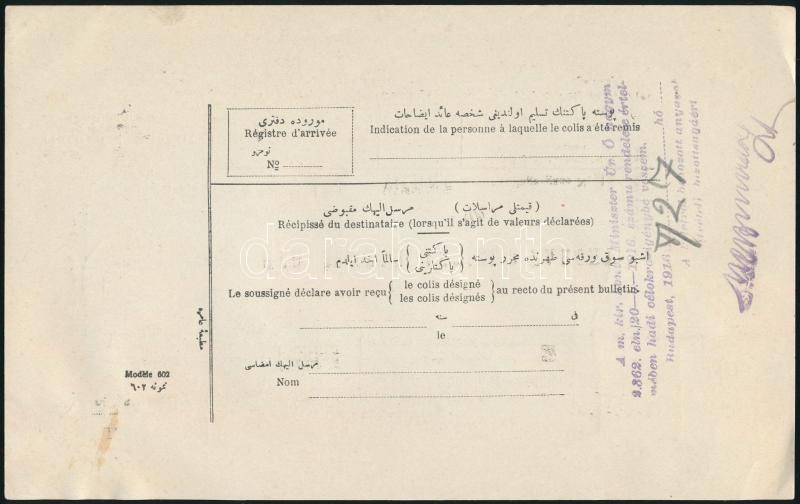 موروده دفتری
Régistre d'arrivée
نومرو
No
پوسته پاكتنك تسليم اولنديغی شخصه عائد ايضاحات
Indication de la personne à laquelle le colis a été remis
مرسل اليهك مقبوضی ( قيمتلی مراسلات )
Récipissé du destinataire (lorsqu'il s'agit de valeurs déclarées)
اشبو سوق ورقه‌سی ظهرنده محرر پوسته ( پاكتنی / پاكتلرينی ) سالماً اخذ ايلدم
Le soussigné déclare avoir reçu { le colis désigné / les colis désignés } au recto du présent bulletin.
فی سنه
le
مرسل اليهك امضاسی
Nom
مطبعهٔ عامره
Modèle 602
نمونه ٦٠٢
A m. kir. miniszter Úr Ő
2.362. eln./20— számú rendelete értel-
mében hadi célokra igénybe veszem.
Budapest, 191 hó
727
darabanth